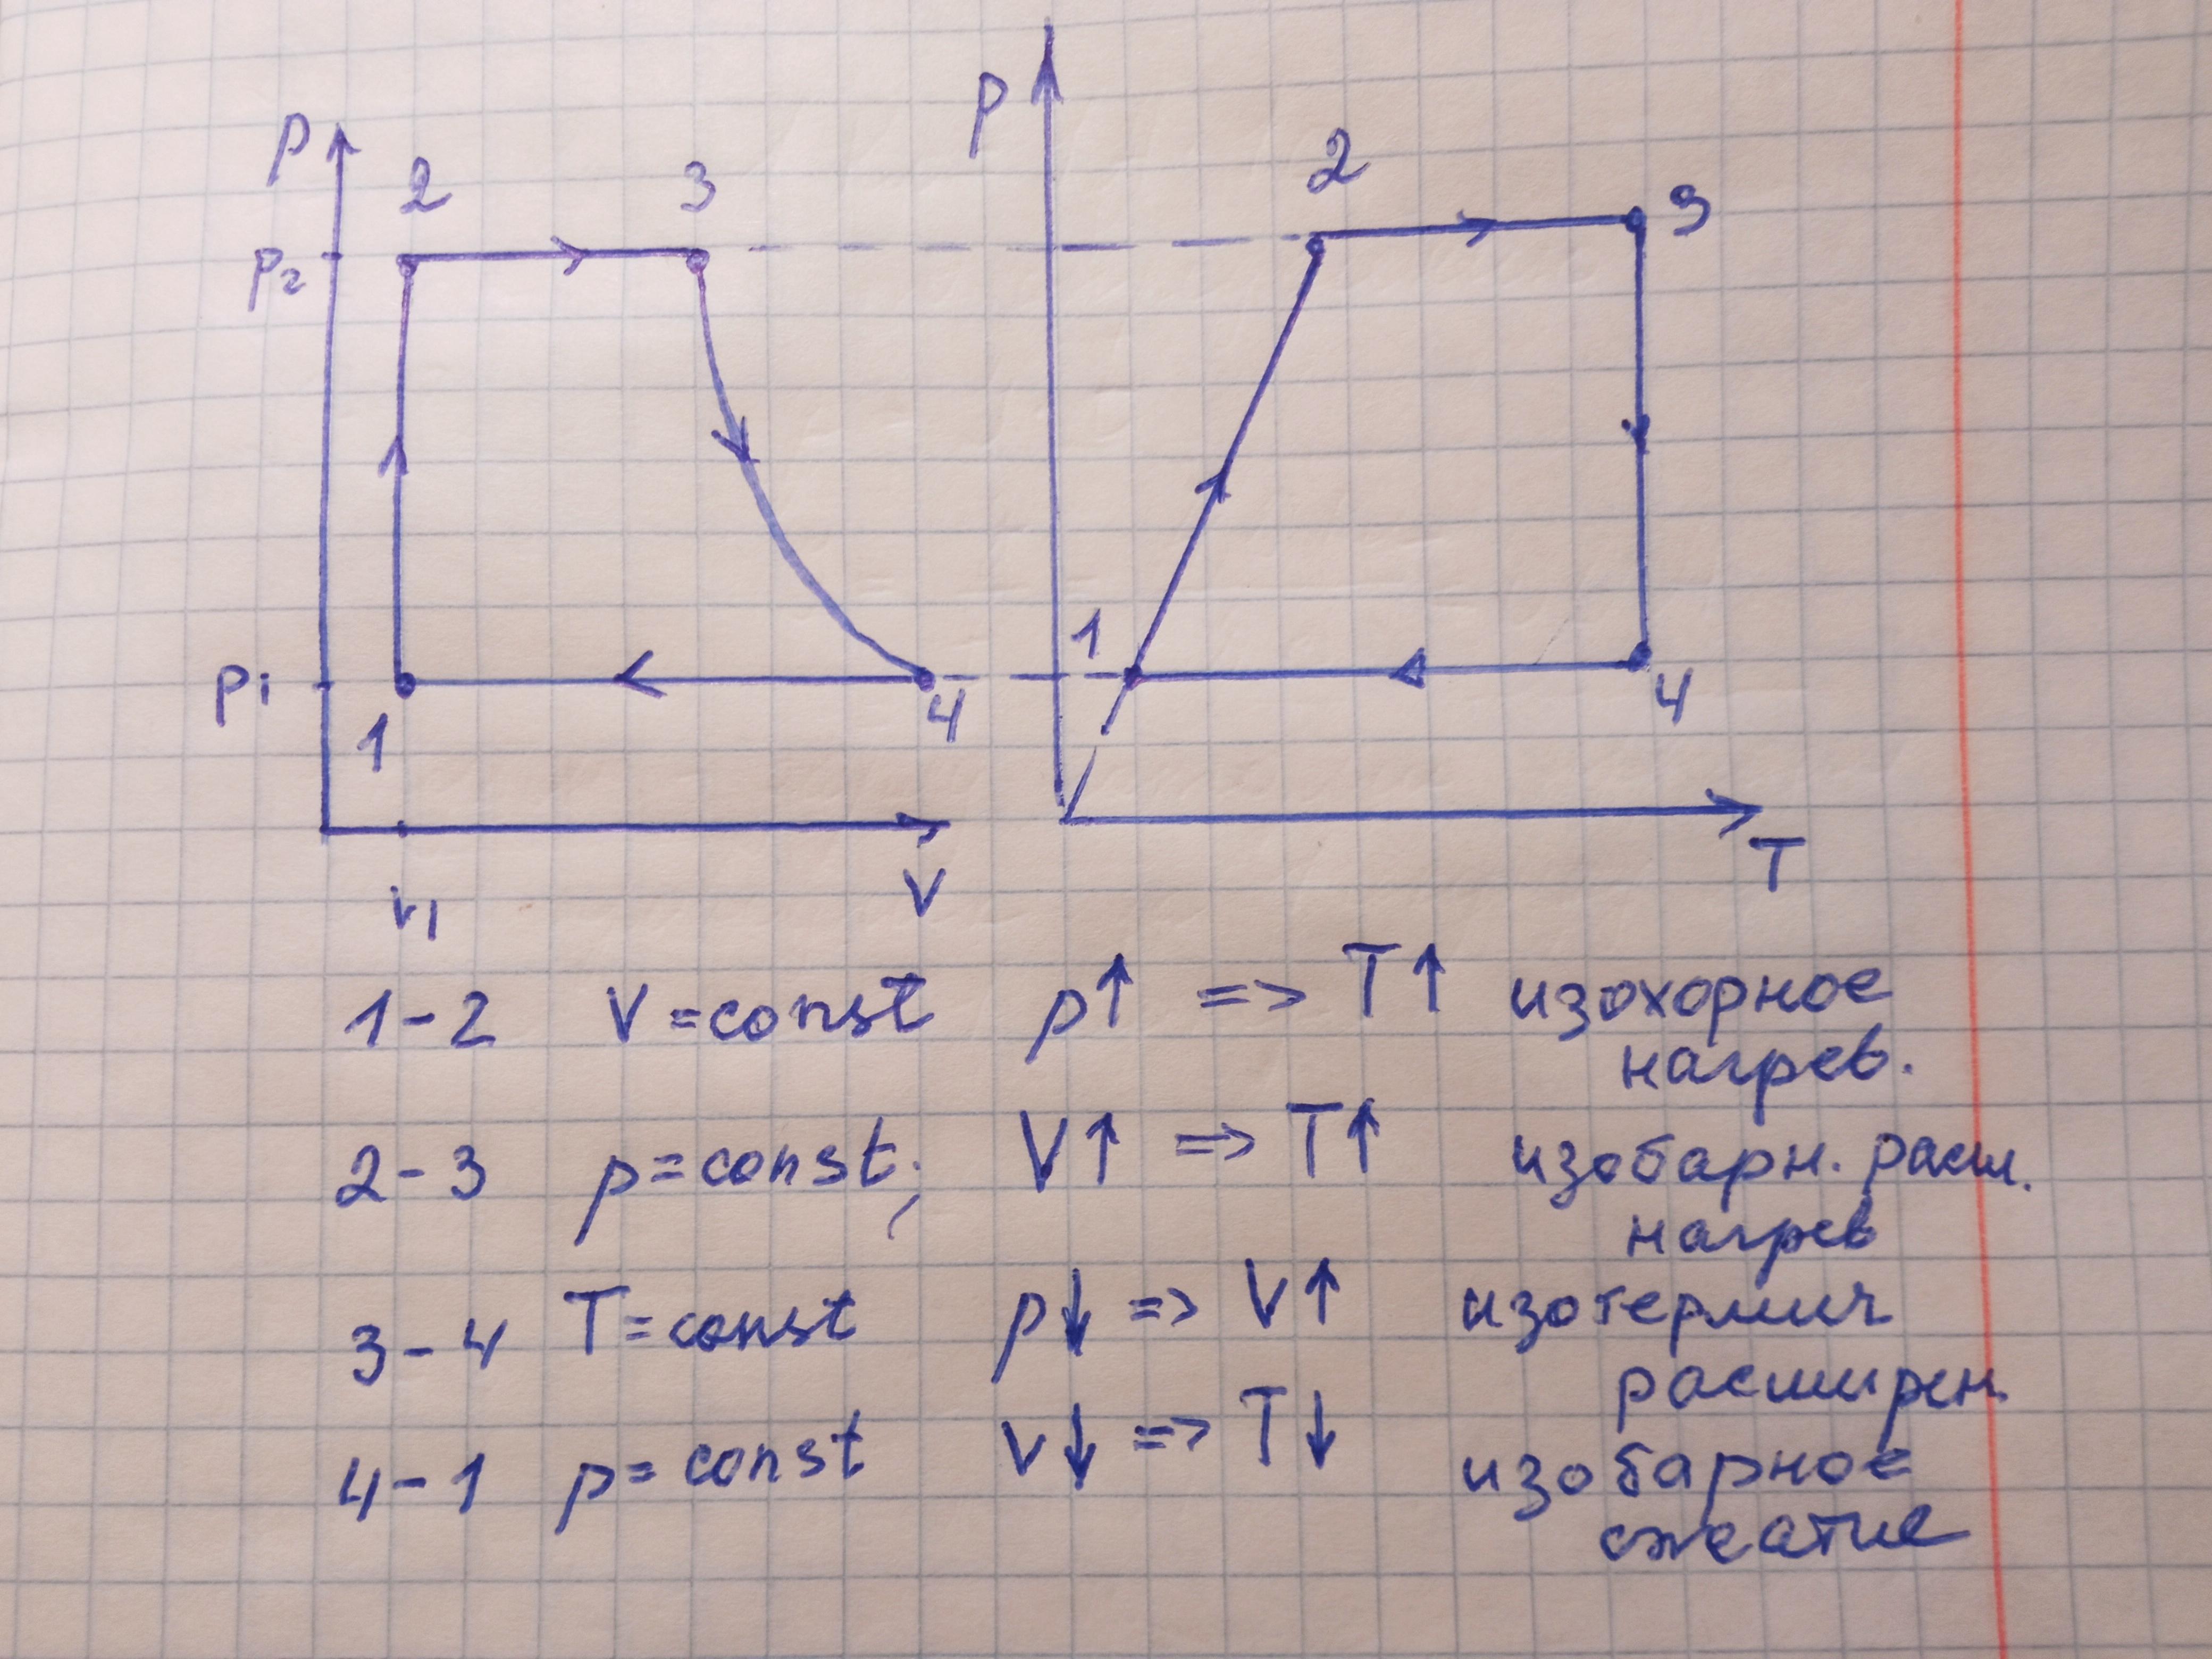 p
2
3
p₂
p₁
1
4
V₁
V
p
2
3
1
4
T
1-2 V=const p↑ => T↑ изохорное
нагрев.
2-3 p=const; V↑ => T↑ изобарн. расш.
нагрев
3-4 T=const p↓ => V↑ изотермич
расширен.
4-1 p=const V↓ => T↓ изобарное
сжатие